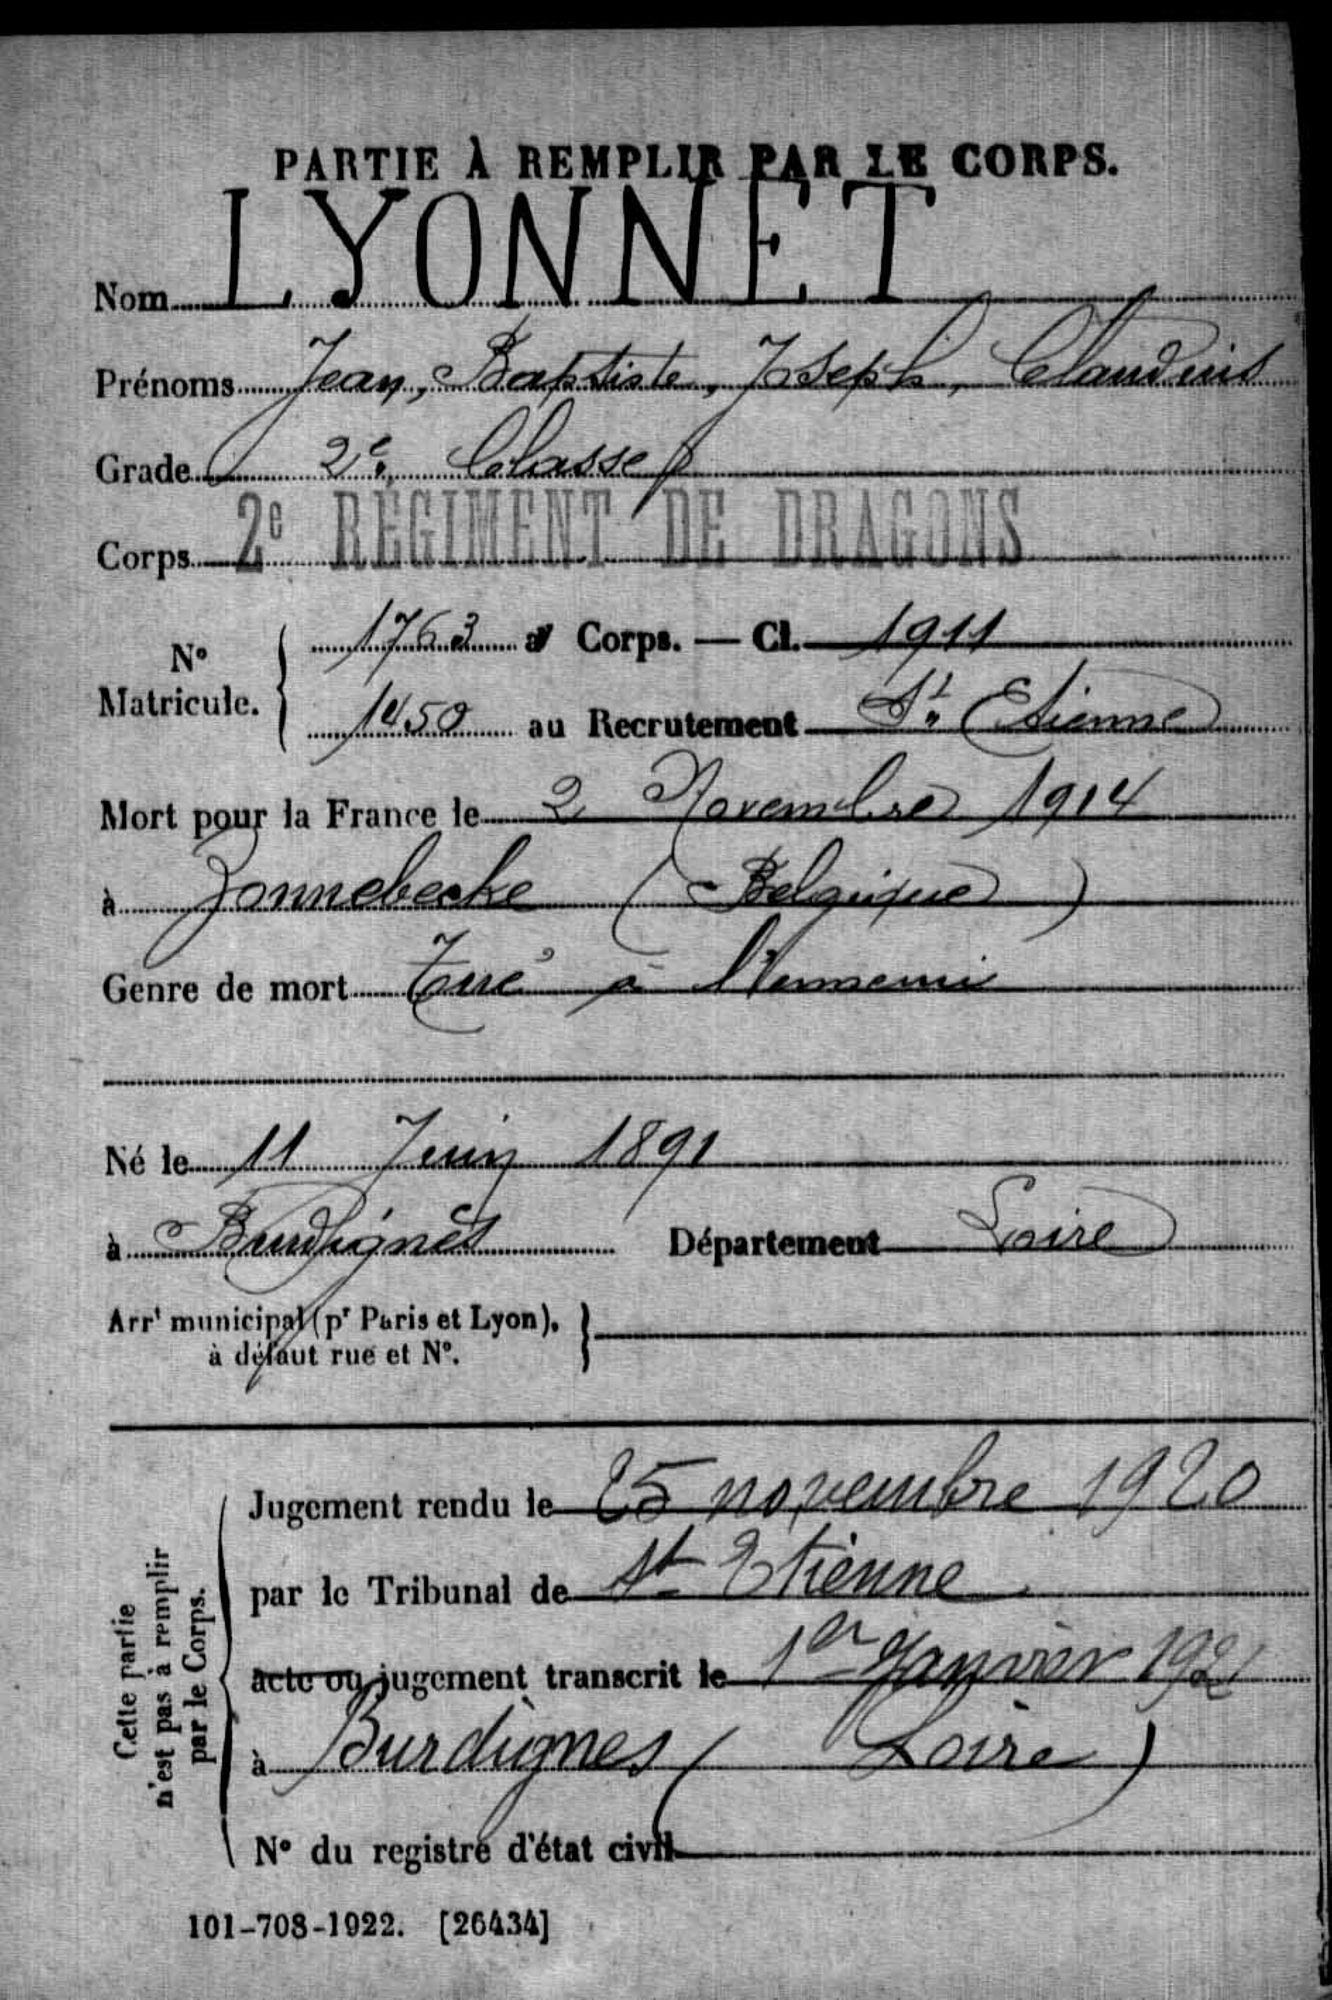 PARTIE À REMPLIR PAR LE CORPS.
Nom LYONNET
Prénoms Jean, Baptiste, Joseph, Claudius
Grade 2e Classe
Corps 2e RÉGIMENT DE DRAGONS
N° Matricule. 1763 au Corps. — Cl. 1911
1450 au Recrutement St Etienne
Mort pour la France le 2 Novembre 1914
à Zonnebecke (Belgique)
Genre de mort Tué à l'ennemi
Né le 11 Juin 1891
à Burdignes Département Loire
Arrt municipal (pr Paris et Lyon),
à défaut rue et N°.
Cette partie n'est pas à remplir par le Corps.
Jugement rendu le 25 novembre 1920
par le Tribunal de St Etienne
acte ou jugement transcrit le 1er Janvier 1921
à Burdignes (Loire)
N° du registre d'état civil
101-708-1922. [26434]